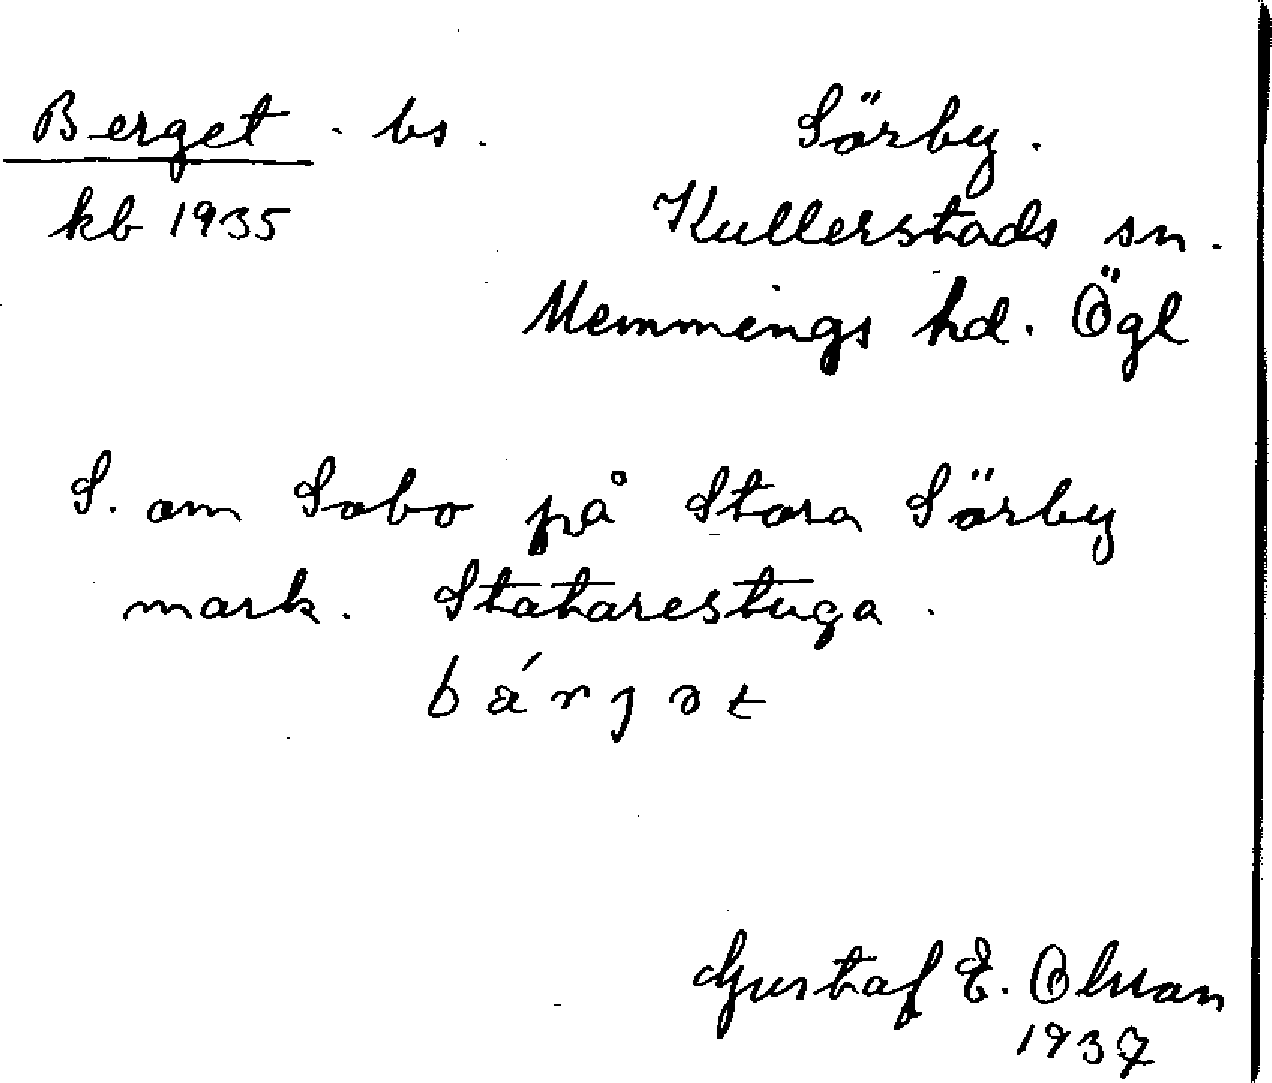 Berget. bs. Sörby.
kb 1935 Kullerstads sn.
Memmings hd. Ögl
S. om Sabo på Stora Sörby
mark. Statarestuga.
bárjət
Gustaf E. Olsson
1937